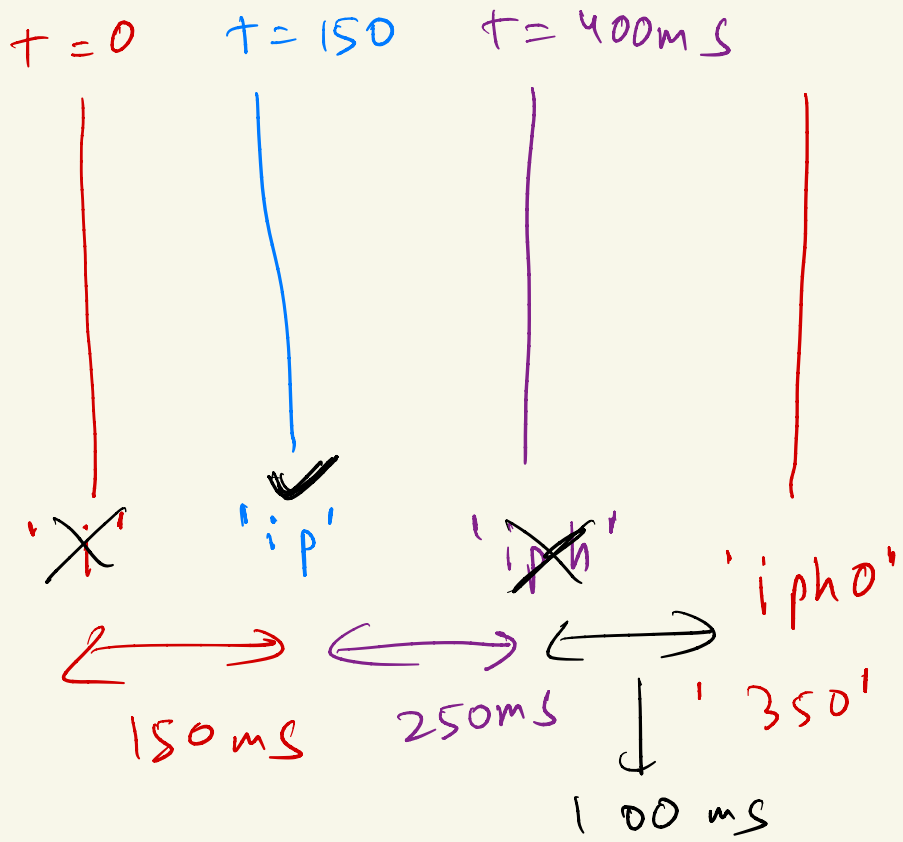 t = 0 t = 150 t = 400ms
'i' 'ip' 'iph' 'ipho'
150ms 250ms '350'
100 ms